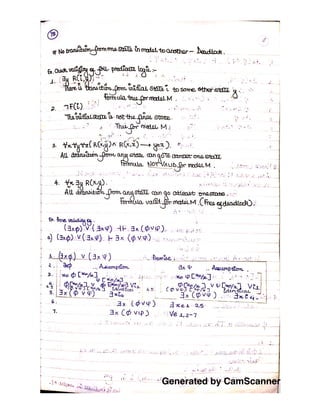 75
# No transition from one state in model to another - Deadlock.
Ex. Check validity of the predicate logic :-
1. ∃y R(i,y)
There is transition from initial state i to some other state y.
formula true for model M.
2. ¬F(i)
The initial state is not the final state
True for model M
3. ∀x∀y∀z(R(x,y) ∧ R(x,z) → y=z).
All transition from any state can go to one state
Formula NOT VALID for model M.
4. ∀x ∃y R(x,y).
All transition from any state can go atleast one state
Formula valid for model M (Free of deadlock).
Ex. Prove validity of
(∃xφ) ∨ (∃xψ) ⊣⊢ ∃x (φ∨ψ)
a) (∃xφ) ∨ (∃xψ) ⊢ ∃x (φ∨ψ)
1. (∃xφ) ∨ (∃xψ) Premise
2. ∃xφ Assumption ∃xψ Assumption
3. x₀ φ[x₀/x] x₀ ψ[x₀/x]
4. φ[x₀/x] ∨ ψ[x₀/x] ∨i₁
5. ∃x (φ∨ψ) ∃x i 4 ∃x (φ∨ψ) ∃x i 4
6. ∃x (φ∨ψ) ∃x e 2, 3-5
7. ∃x (φ∨ψ) ∨e 1, 2-7
Generated by CamScanner